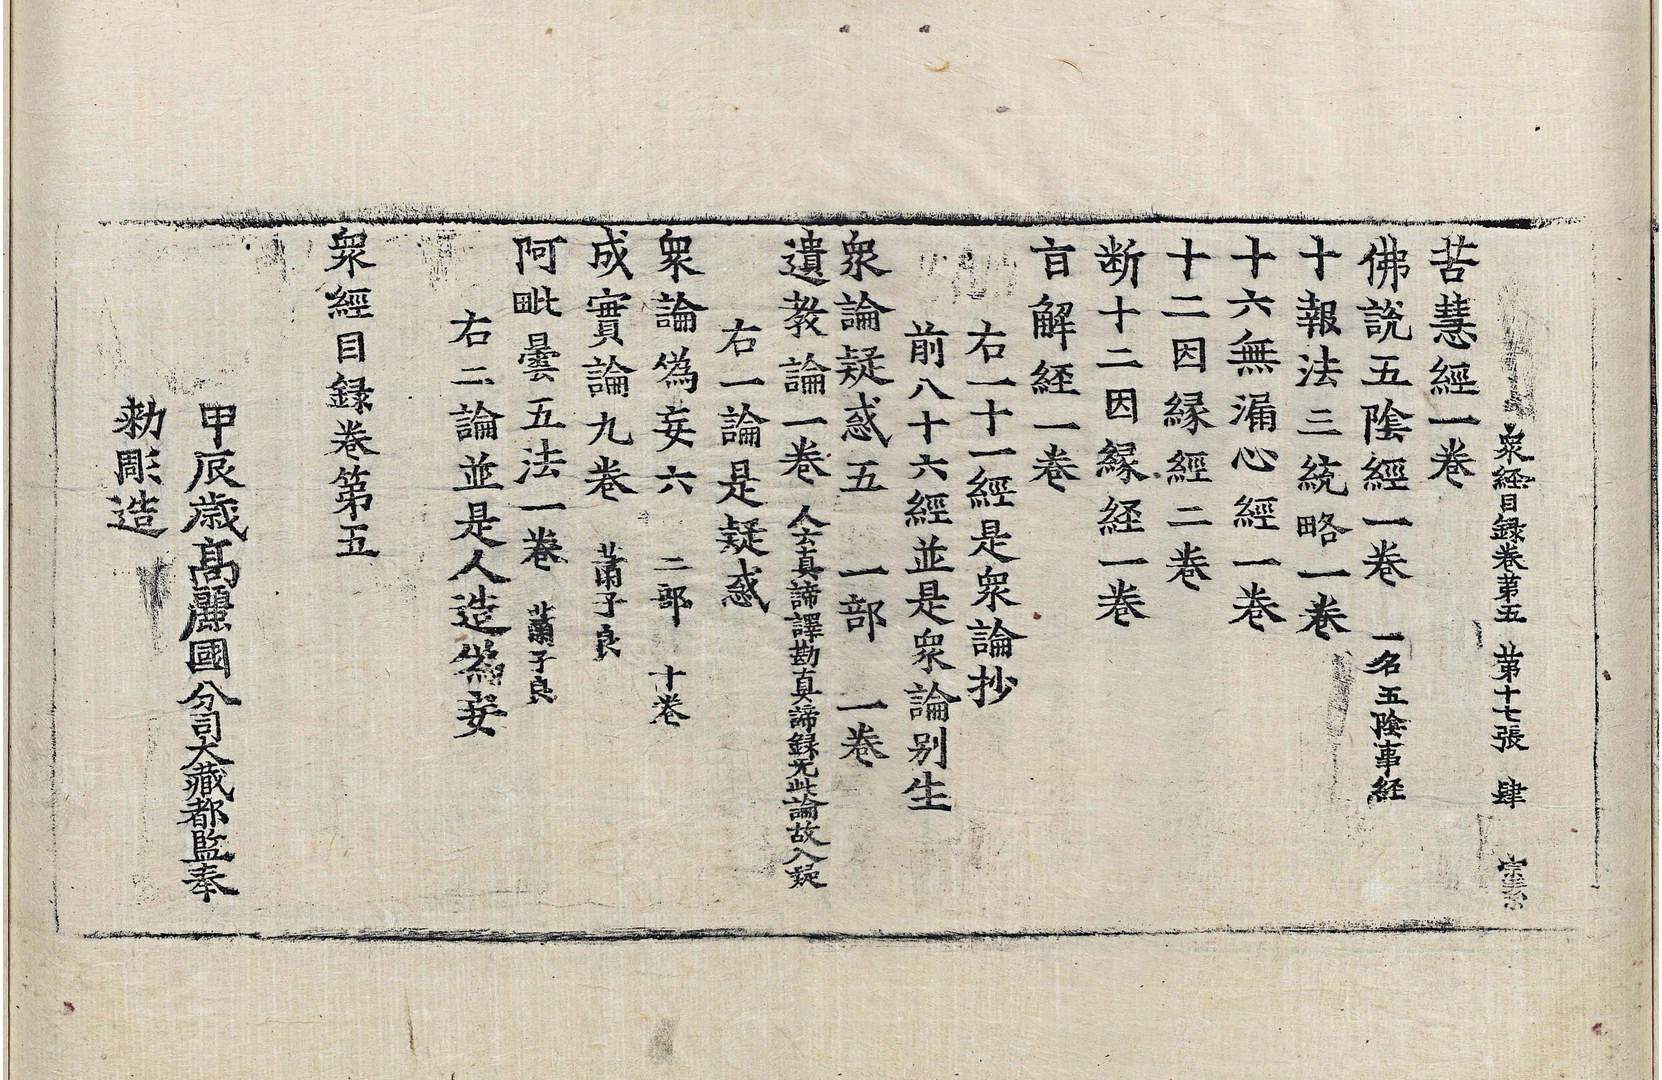 衆經目録卷第五 第十七張 肆
苦慧經一卷
佛說五陰經一卷 一名五陰事経
十報法三統略一卷
十六無漏心經一卷
十二因縁經二卷
断十二因縁経一卷
盲解経一卷
右一十一經是衆論抄
前八十六經並是衆論别生
衆論疑惑五 一部 一卷
遺教論一卷 人云真諦譯勘真諦録无此論故入疑
右一論是疑惑
衆論為妄六 二部 十卷
成實論九卷 蕭子良
阿毗曇五法一卷 蕭子良
右二論並是人造為妄
衆經目録卷第五
甲辰歲髙麗國分司大藏都監奉
勅彫造